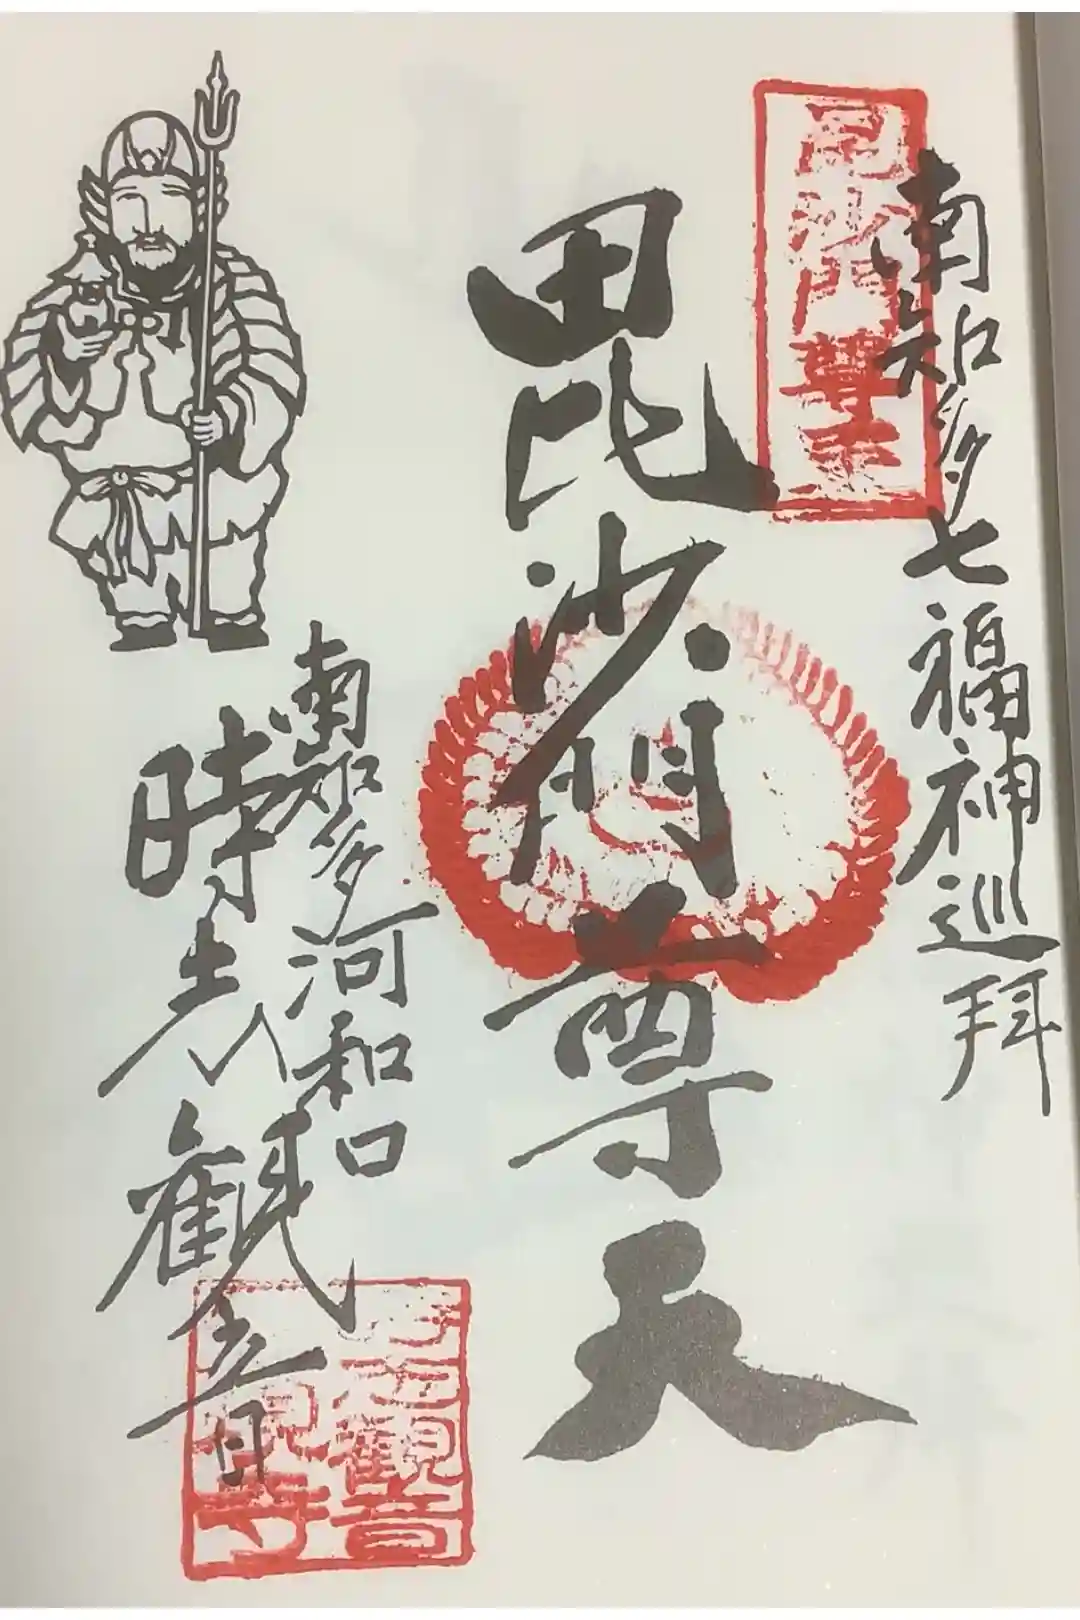 南知多七福神巡拜
毘沙門尊天
毘沙門尊天
南知多河和口
時志観音
時志観音
影現寺